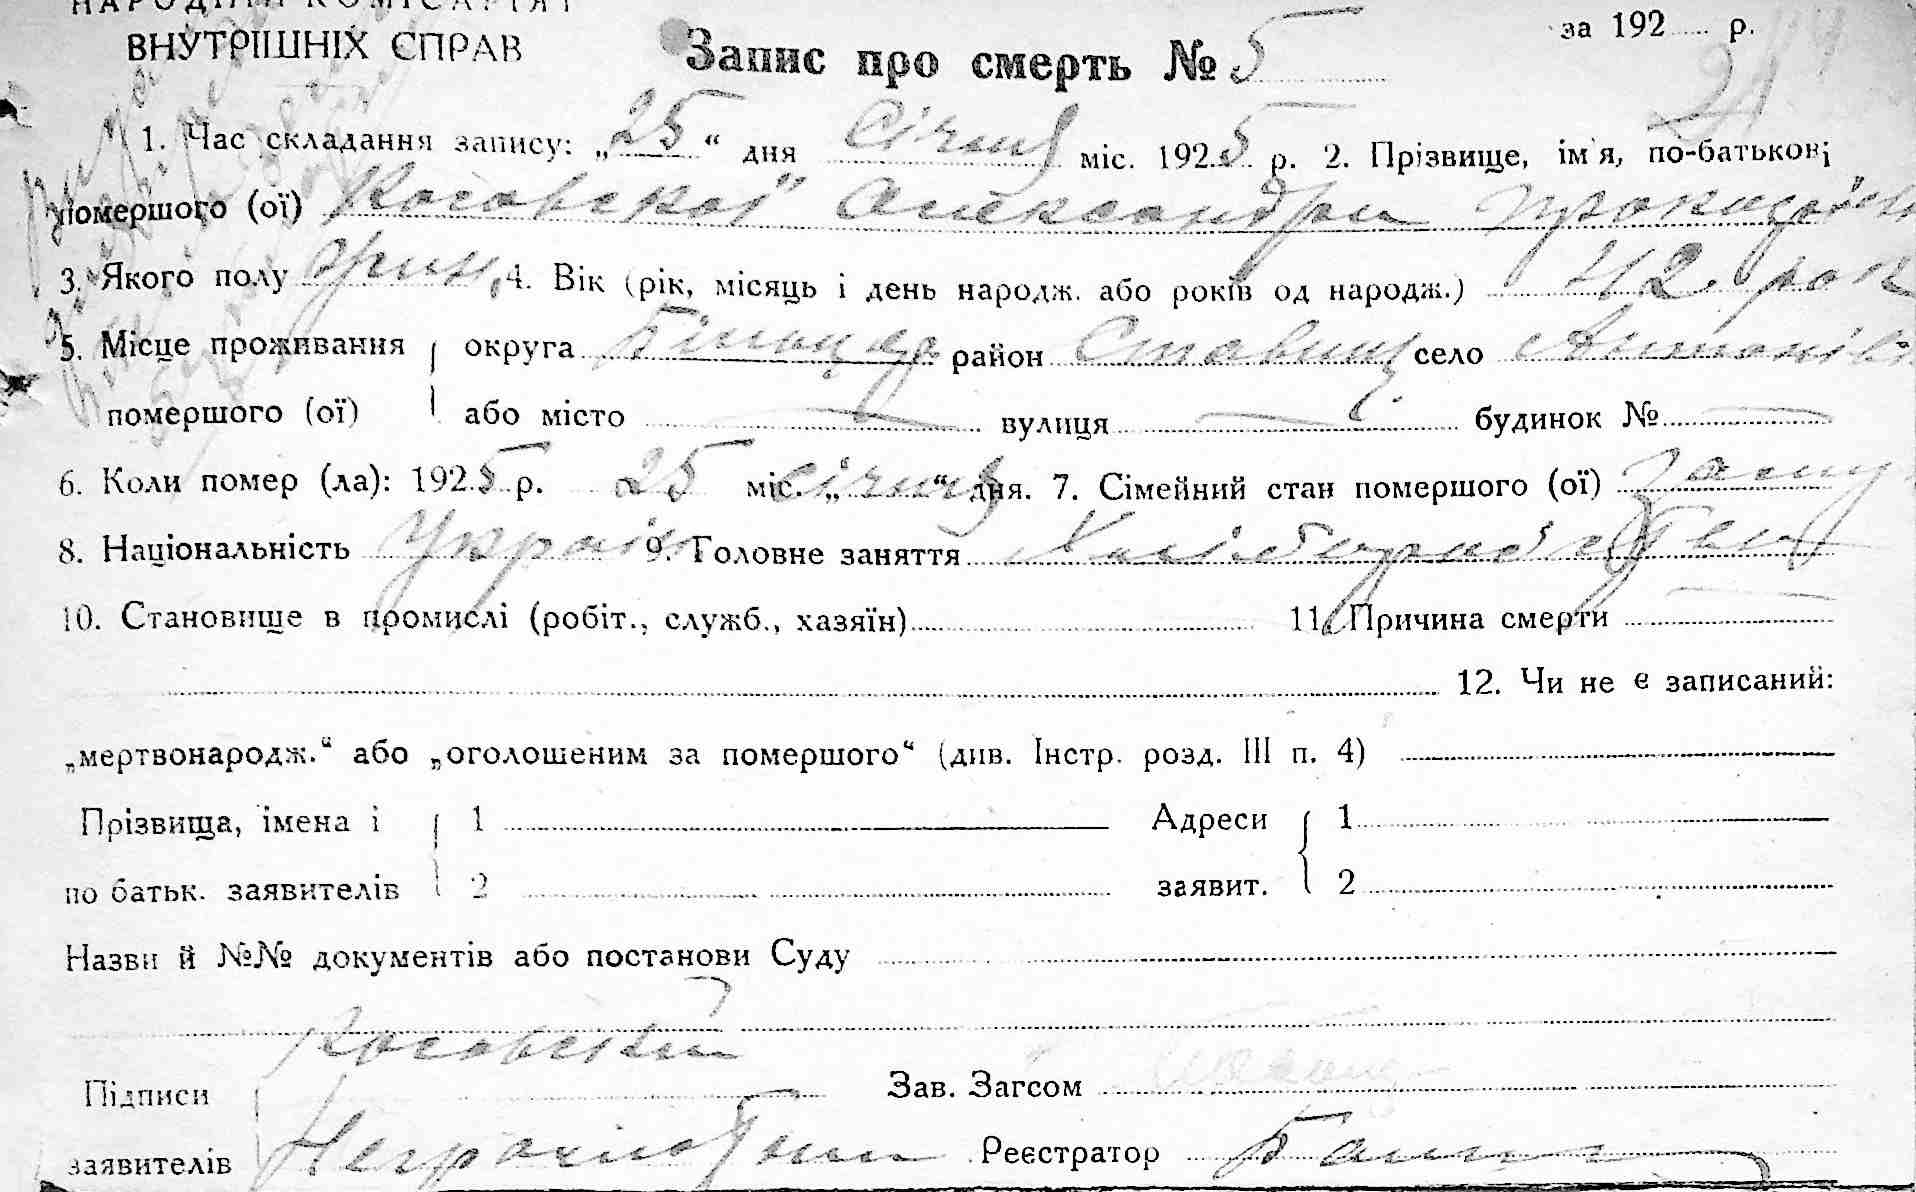 НАРОДНІЙ КОМІСАРІЯТ
ВНУТРІШНІХ СПРАВ
Запис про смерть № 5
за 192 р.
1. Час складання запису: „25“ дня Січня міс. 1925 р. 2. Прізвище, ім'я, по-батькові
помершого (ої) Косовської Олександри
3. Якого полу жін. 4. Вік (рік, місяць і день народж. або років од народж.) 42 рок
5. Місце проживання округа Білоцер район Ставищ село Антонів
помершого (ої) або місто — вулиця — будинок № —
6. Коли помер (ла): 1925 р. 25 міс. „Січня“ дня. 7. Сімейний стан помершого (ої)
8. Національність Україн 9. Головне заняття Хліборобство
10. Становище в промислі (робіт., служб., хазяїн) 11. Причина смерти
12. Чи не є записаний:
„мертвонародж.“ або „оголошеним за помершого“ (див. Інстр. розд. III п. 4)
Прізвища, імена і 1 Адреси 1
по батьк. заявителів 2 заявит. 2
Назви й №№ документів або постанови Суду
Косовский
Підписи Зав. Загсом
заявителів Неграмотний Реєстратор